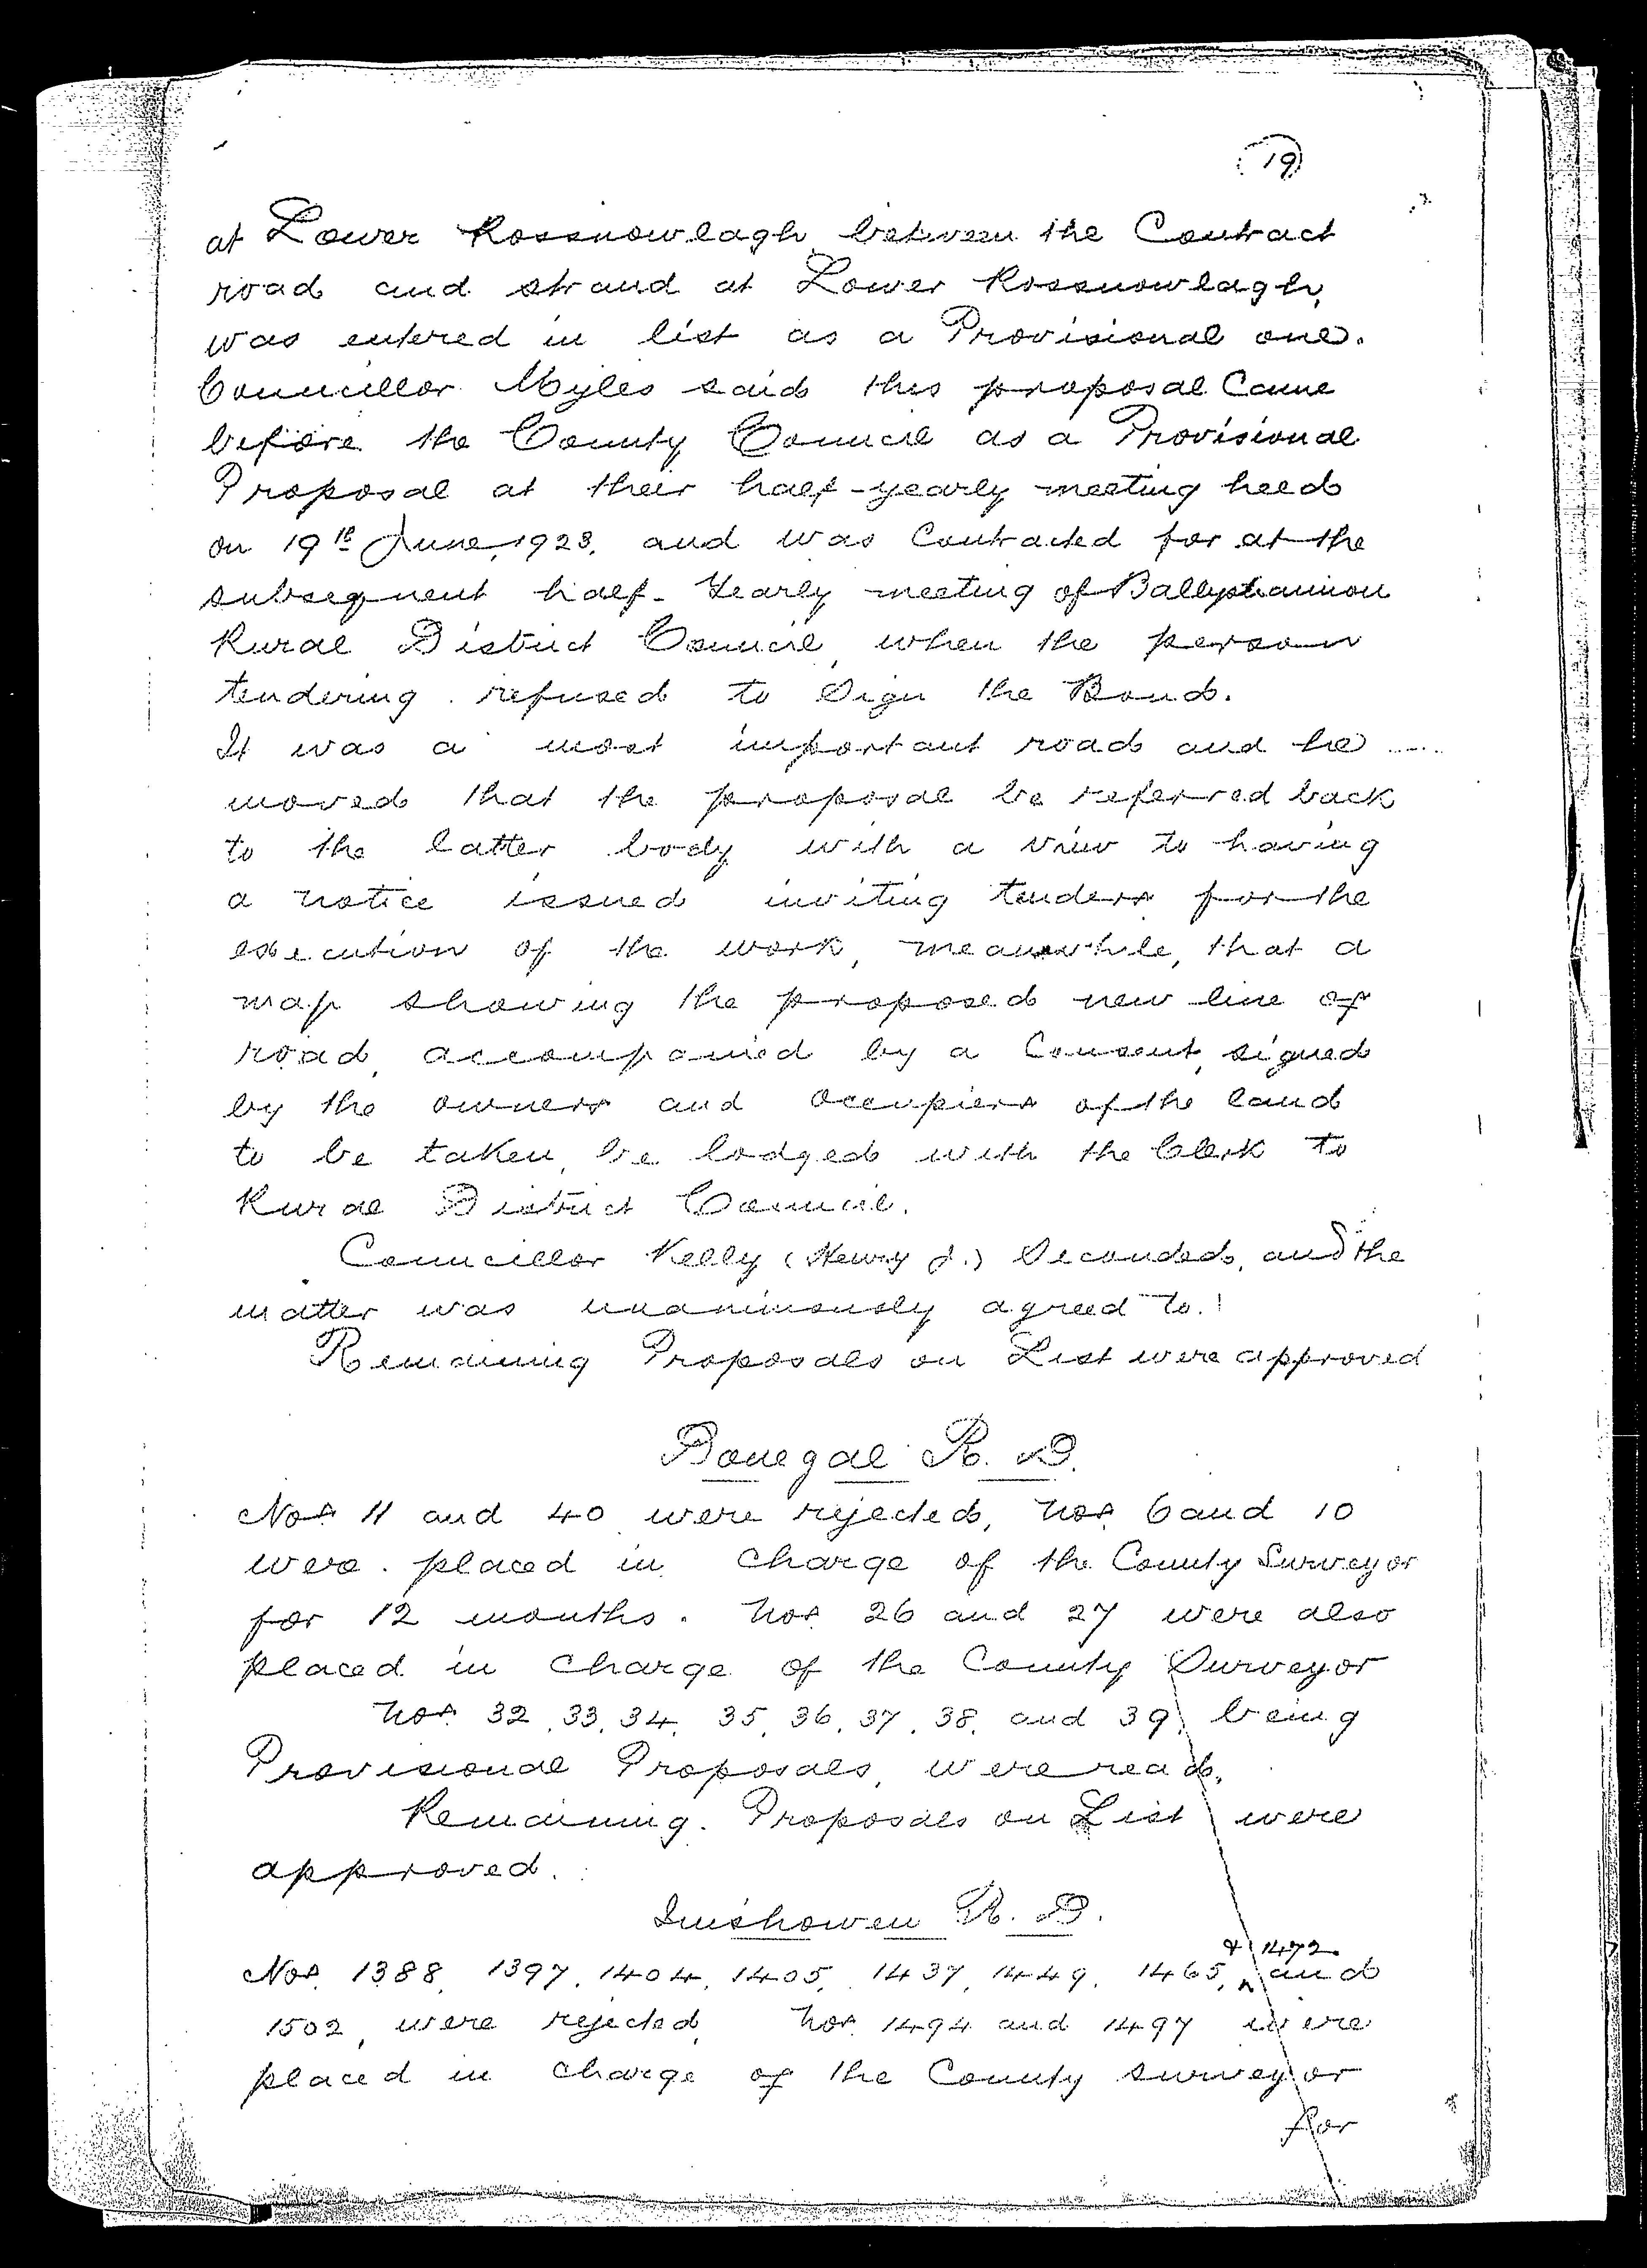 19
at Lower Rossnowlagh between the Contract
road and strand at Lower Rossnowlagh,
was entered in list as a Provisional one.
Councillor Myles said this proposal Came
before the County Council as a Provisional
Proposal at their half-yearly meeting held
on 19th June, 1923, and was Contracted for at the
subsequent half-Yearly meeting of Ballyshannon
Rural District Council, when the person
tendering refused to Sign the Bond.
It was a most important road and he
moved that the proposal be referred back
to the latter body with a view to having
a notice issued inviting tenders for the
execution of the work, meanwhile, that a
map showing the proposed new line of
road, accompanied by a Consent, signed
by the owners and occupiers of the land
to be taken, be lodged with the Clerk to
Rural District Council.
Councillor Kelly (Henry J.) Seconded, and the
matter was unanimously agreed to.
Remaining Proposals on List were approved
Donegal R. D.
Nos 11 and 40 were rejected, Nos 6 and 10
were placed in Charge of the County Surveyor
for 12 months. Nos 26 and 27 were also
placed in Charge of the County Surveyor
Nos 32, 33, 34, 35, 36, 37, 38, and 39, being
Provisional Proposals, were read.
Remaining Proposals on List were
approved.
Inishowen R. D.
& 1472
Nos 1388, 1397, 1404, 1405, 1437, 1449, 1465, and
1502, were rejected, Nos 1494 and 1497 were
placed in Charge of the County surveyor
for